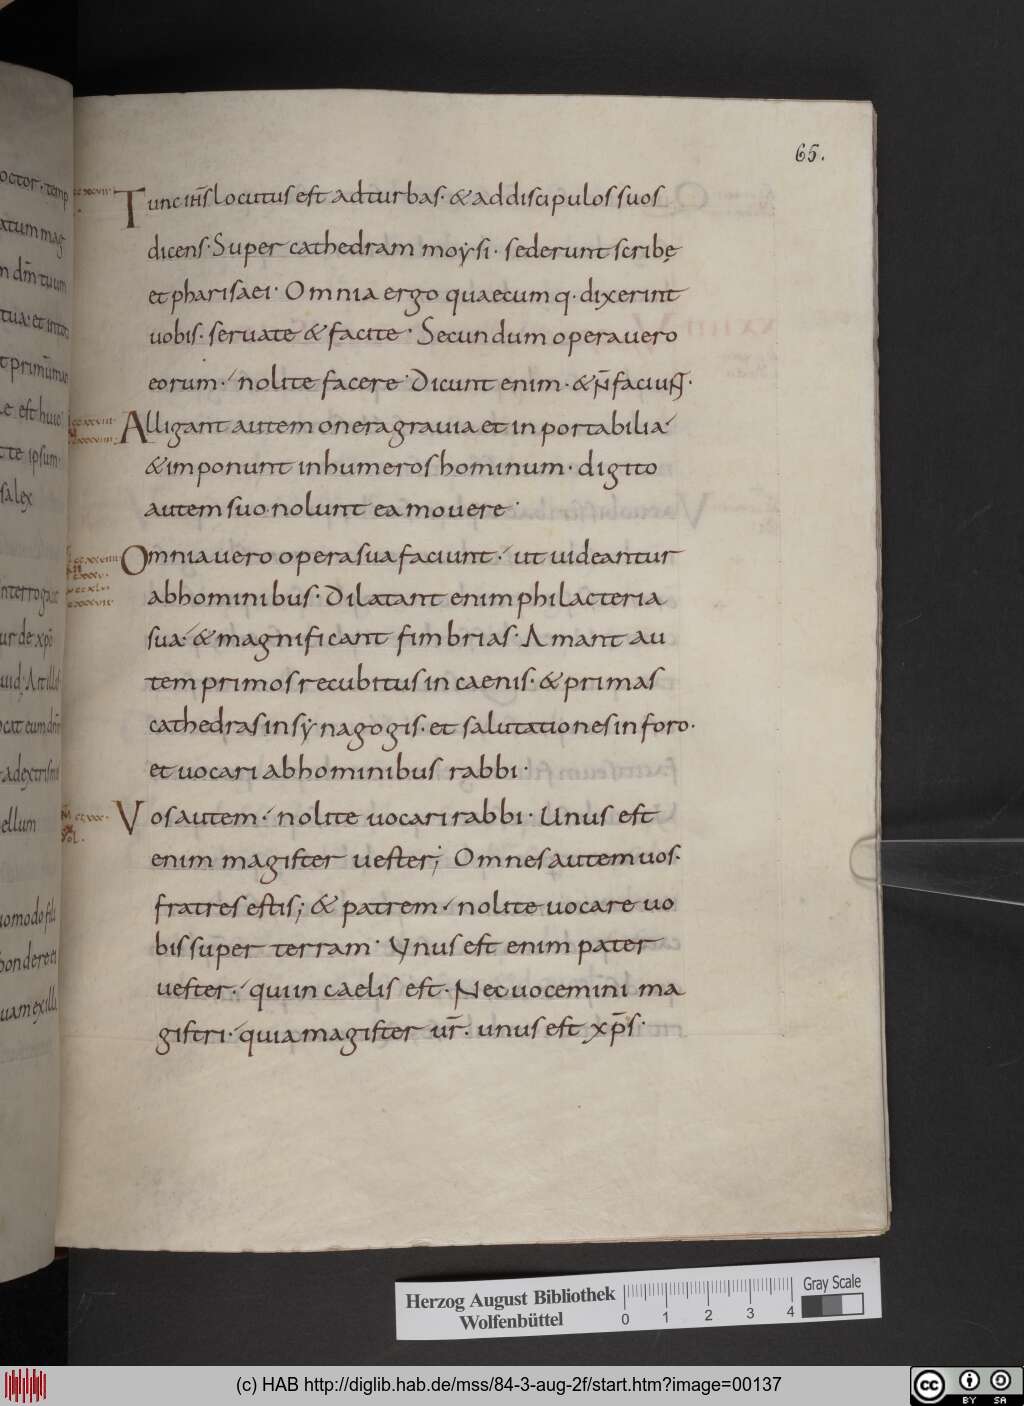 65.
Tunc ih̅s locutus est ad turbas· & ad discipulos suos
dicens· Super cathedram moẏsi· sederunt scribę
et pharisaei· Omnia ergo quaecumq· dixerint
uobis· seruate & facite· Secundum opera uero
eorum· nolite facere· Dicunt enim· & n̅ faciunt·
Alligant autem onera grauia et inportabilia
& imponunt in humeros hominum· digito
autem suo nolunt ea mouere·
Omnia uero opera sua faciunt· ut uideantur
ab hominibus· Dilatant enim philacteria
sua· & magnificant fimbrias· Amant au
tem primos recubitus in caenis· & primas
cathedras in sẏnagogis· et salutationes in foro·
et uocari ab hominibus rabbi·
Vos autem· nolite uocari rabbi· Unus est
enim magister uester; Omnes autem uos·
fratres estis; & patrem· nolite uocare uo
bis super terram· Vnus est enim pater
uester· qui in caelis est· Nec uocemini ma
gistri· quia magister ur̅· unus est xp̅s·
Herzog August Bibliothek
Wolfenbüttel
0 1 2 3 4
Gray Scale
(c) HAB http://diglib.hab.de/mss/84-3-aug-2f/start.htm?image=00137
cc BY SA